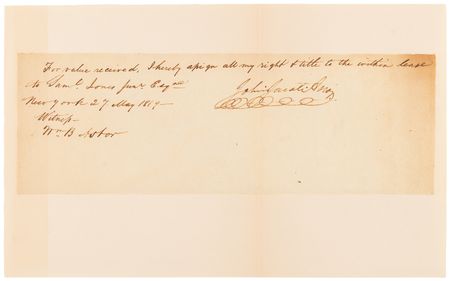 For value received, I hereby assign all my right & title to the within lease
to Saml. Jones Junr. Esqre
John Jacob Astor
New york 27 May 1819—
Witness—
Wm B Astor